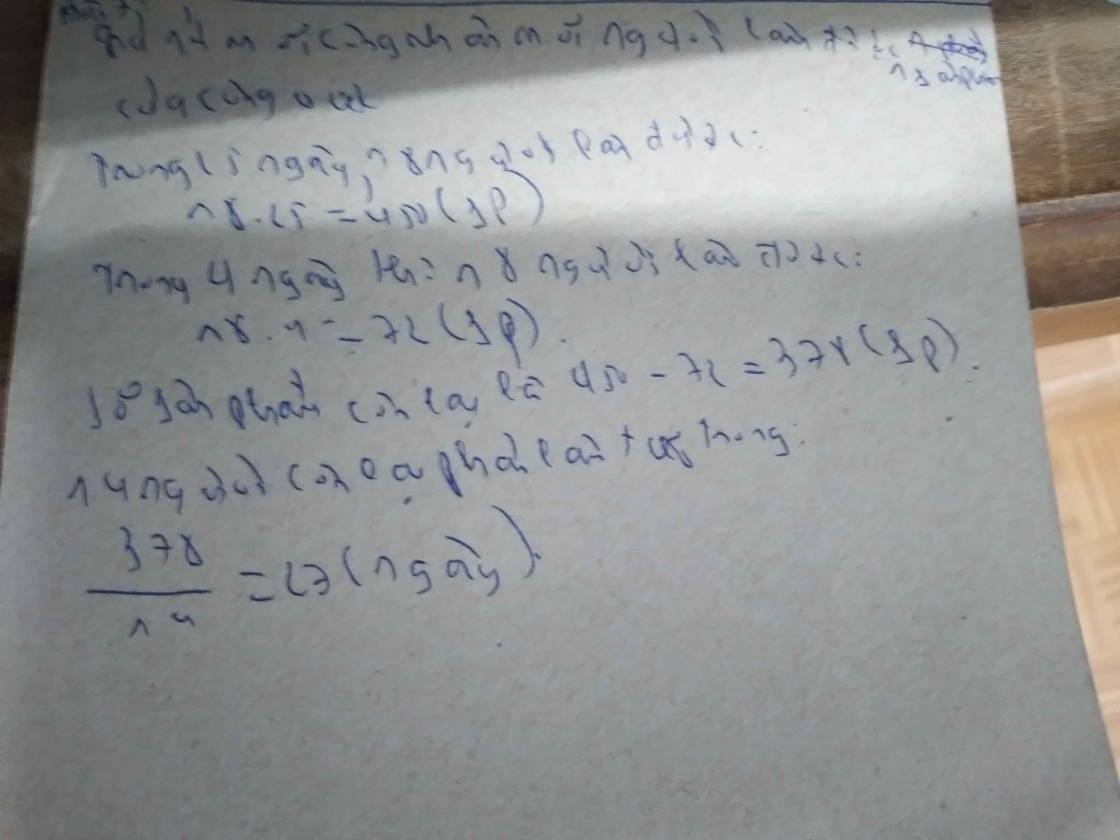 mỗi công nhân mỗi người làm được
1 sản phẩm
của công việc
Trong 25 ngày, 18 người làm được:
18.25 = 450 (sp)
Trong 4 ngày thì 18 người làm được:
18.4 = 72 (sp).
Số sản phẩm còn lại là 450 - 72 = 378 (sp).
14 người còn lại phải làm trong:
378
14
= 27 (ngày).